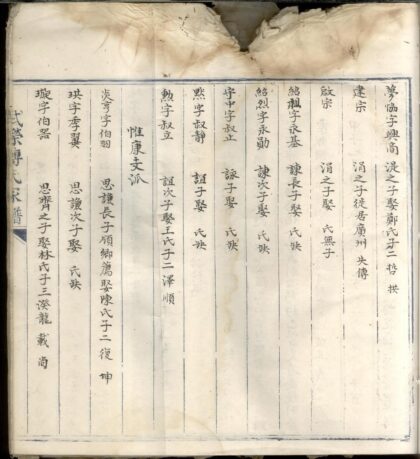 夢協字興高 湜之子娶鄭氏子二 拱
建宗 涓之子徙居廣州 失傳
啟宗 涓之子娶 氏無子
紹祖字永基 諫長子娶 氏缺
紹烈字永勛 諫次子娶 氏缺
守中字叔立 詠子娶 氏缺
默字叔靜 誼子娶 氏缺
勲字叔立 誼次子娶王氏子二 澤 順
惟康支派
炎亨字伯羽 思謙長子領鄉薦娶陳氏子二 復 坤
珙字季翼 思謙次子娶 氏缺
璇字伯器 思齊之子娶林氏子三 龍 載 尚
武榮傅氏家譜